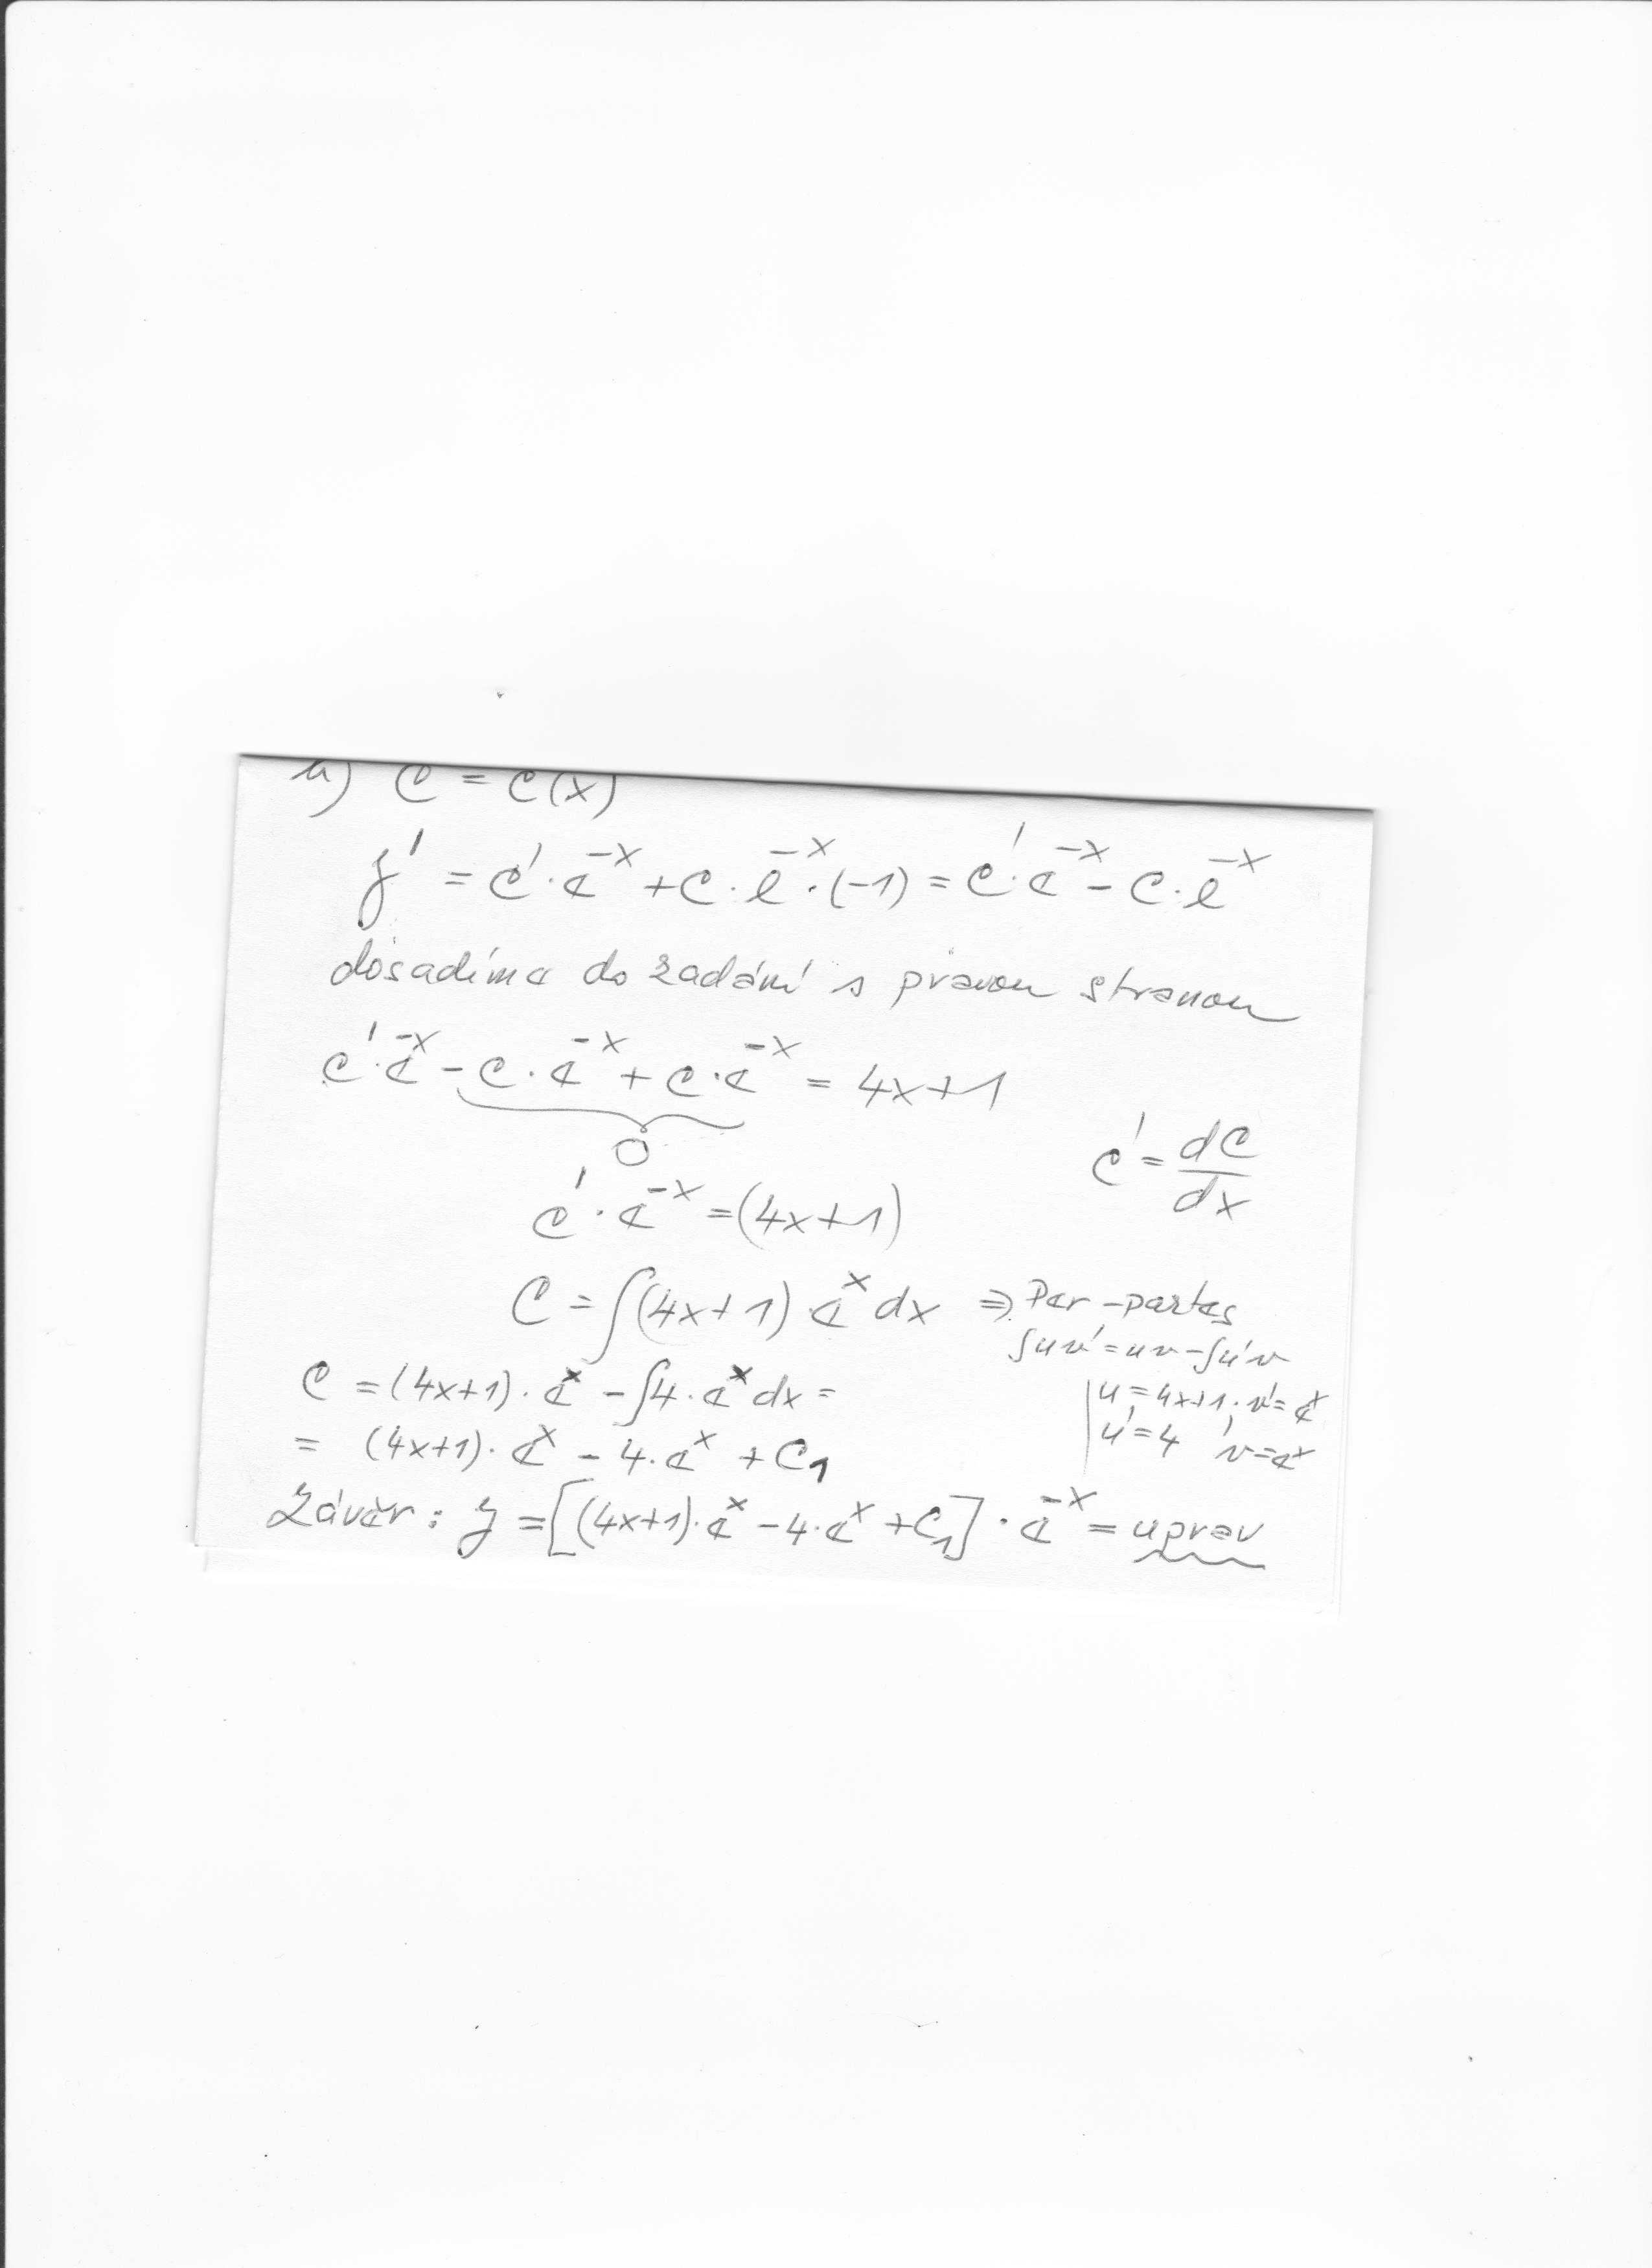 b) C = C(x)
y' = C'·e^-x + C·e^-x·(-1) = C'·e^-x - C·e^-x
dosadíme do zadání s pravou stranou
C'·e^-x - C·e^-x + C·e^-x = 4x+1
0
C' = dC/dx
C'·e^-x = (4x+1)
C = ∫(4x+1)·e^x dx ⇒ Per-partes
∫uv' = uv - ∫u'v
C = (4x+1)·e^x - ∫4·e^x dx =
u = 4x+1; v' = e^x
u' = 4, v = e^x
= (4x+1)·e^x - 4·e^x + C₁
Závěr: y = [(4x+1)·e^x - 4·e^x + C₁]·e^-x = uprav